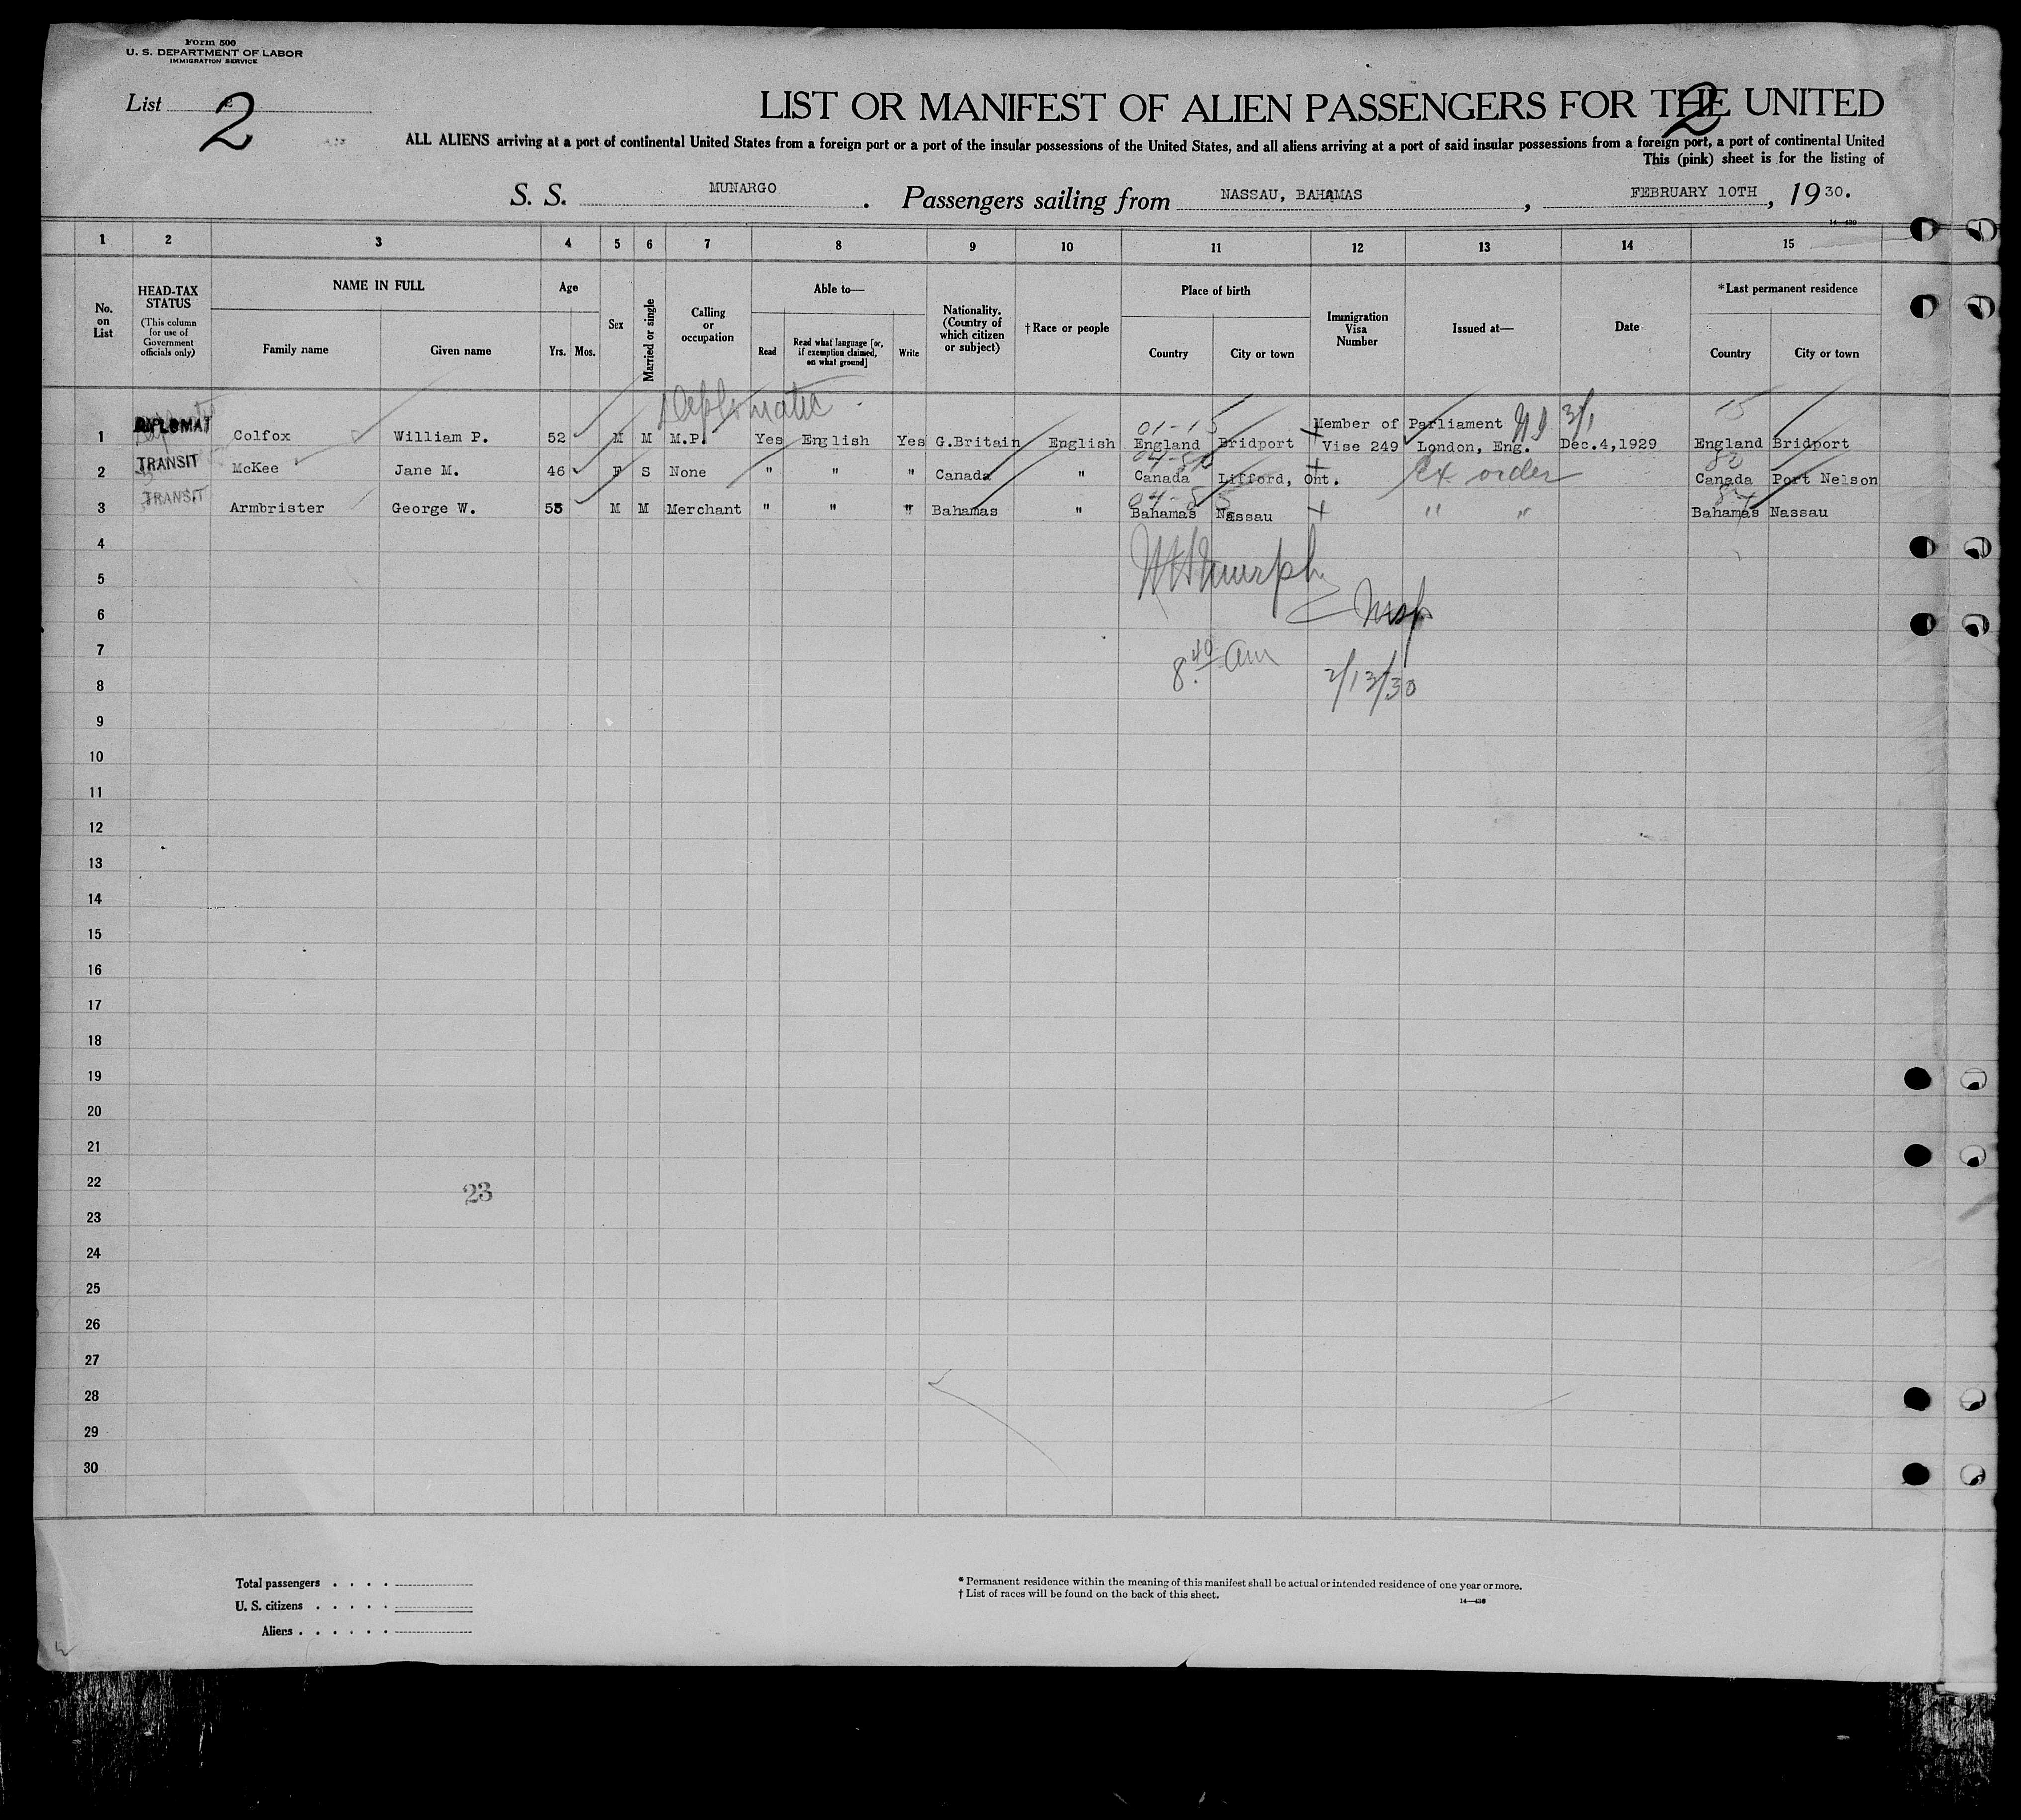 Form 500
U. S. DEPARTMENT OF LABOR
IMMIGRATION SERVICE
List 2
LIST OR MANIFEST OF ALIEN PASSENGERS FOR THE UNITED
2
ALL ALIENS arriving at a port of continental United States from a foreign port or a port of the insular possessions of the United States, and all aliens arriving at a port of said insular possessions from a foreign port, a port of continental United
This (pink) sheet is for the listing of
S. S. MUNARGO. Passengers sailing from NASSAU, BAHAMAS, FEBRUARY 10TH, 1930.
14—430
1 2 3 4 5 6 7 8 9 10 11 12 13 14 15
No. on List
HEAD-TAX STATUS
(This column for use of Government officials only)
NAME IN FULL
Family name Given name
Age
Yrs. Mos.
Sex
Married or single
Calling or occupation
Able to—
Read
Read what language [or, if exemption claimed, on what ground]
Write
Nationality. (Country of which citizen or subject)
† Race or people
Place of birth
Country City or town
Immigration Visa Number
Issued at—
Date
* Last permanent residence
Country City or town
Diplomatic
01-15 Member of Parliament 3/1 15
1 DIPLOMAT Colfox William P. 52 M M M.P. Yes English Yes G.Britain English England Bridport Vise 249 London, Eng. Dec.4,1929 England Bridport
2 TRANSIT McKee Jane M. 46 F S None " " " Canada " Canada Lifford, Ont. Ex order Canada Port Nelson
3 TRANSIT Armbrister George W. 55 M M Merchant " " " Bahamas " Bahamas Nassau " " Bahamas Nassau
4
5
6
7
8
8 40 am 2/13/30
9
10
11
12
13
14
15
16
17
18
19
20
21
22
23
23
24
25
26
27
28
29
30
Total passengers . . . .
U. S. citizens . . . . .
Aliens . . . . . .
* Permanent residence within the meaning of this manifest shall be actual or intended residence of one year or more.
† List of races will be found on the back of this sheet.
14—430